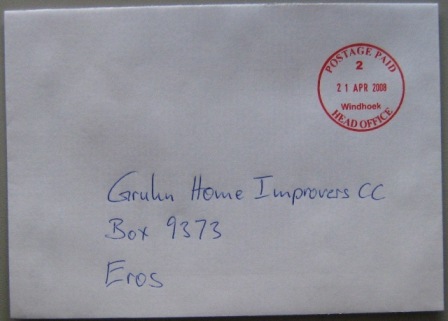 POSTAGE PAID
2
21 APR 2008
Windhoek
HEAD OFFICE
Gruhn Home Improvers CC
Box 9373
Eros